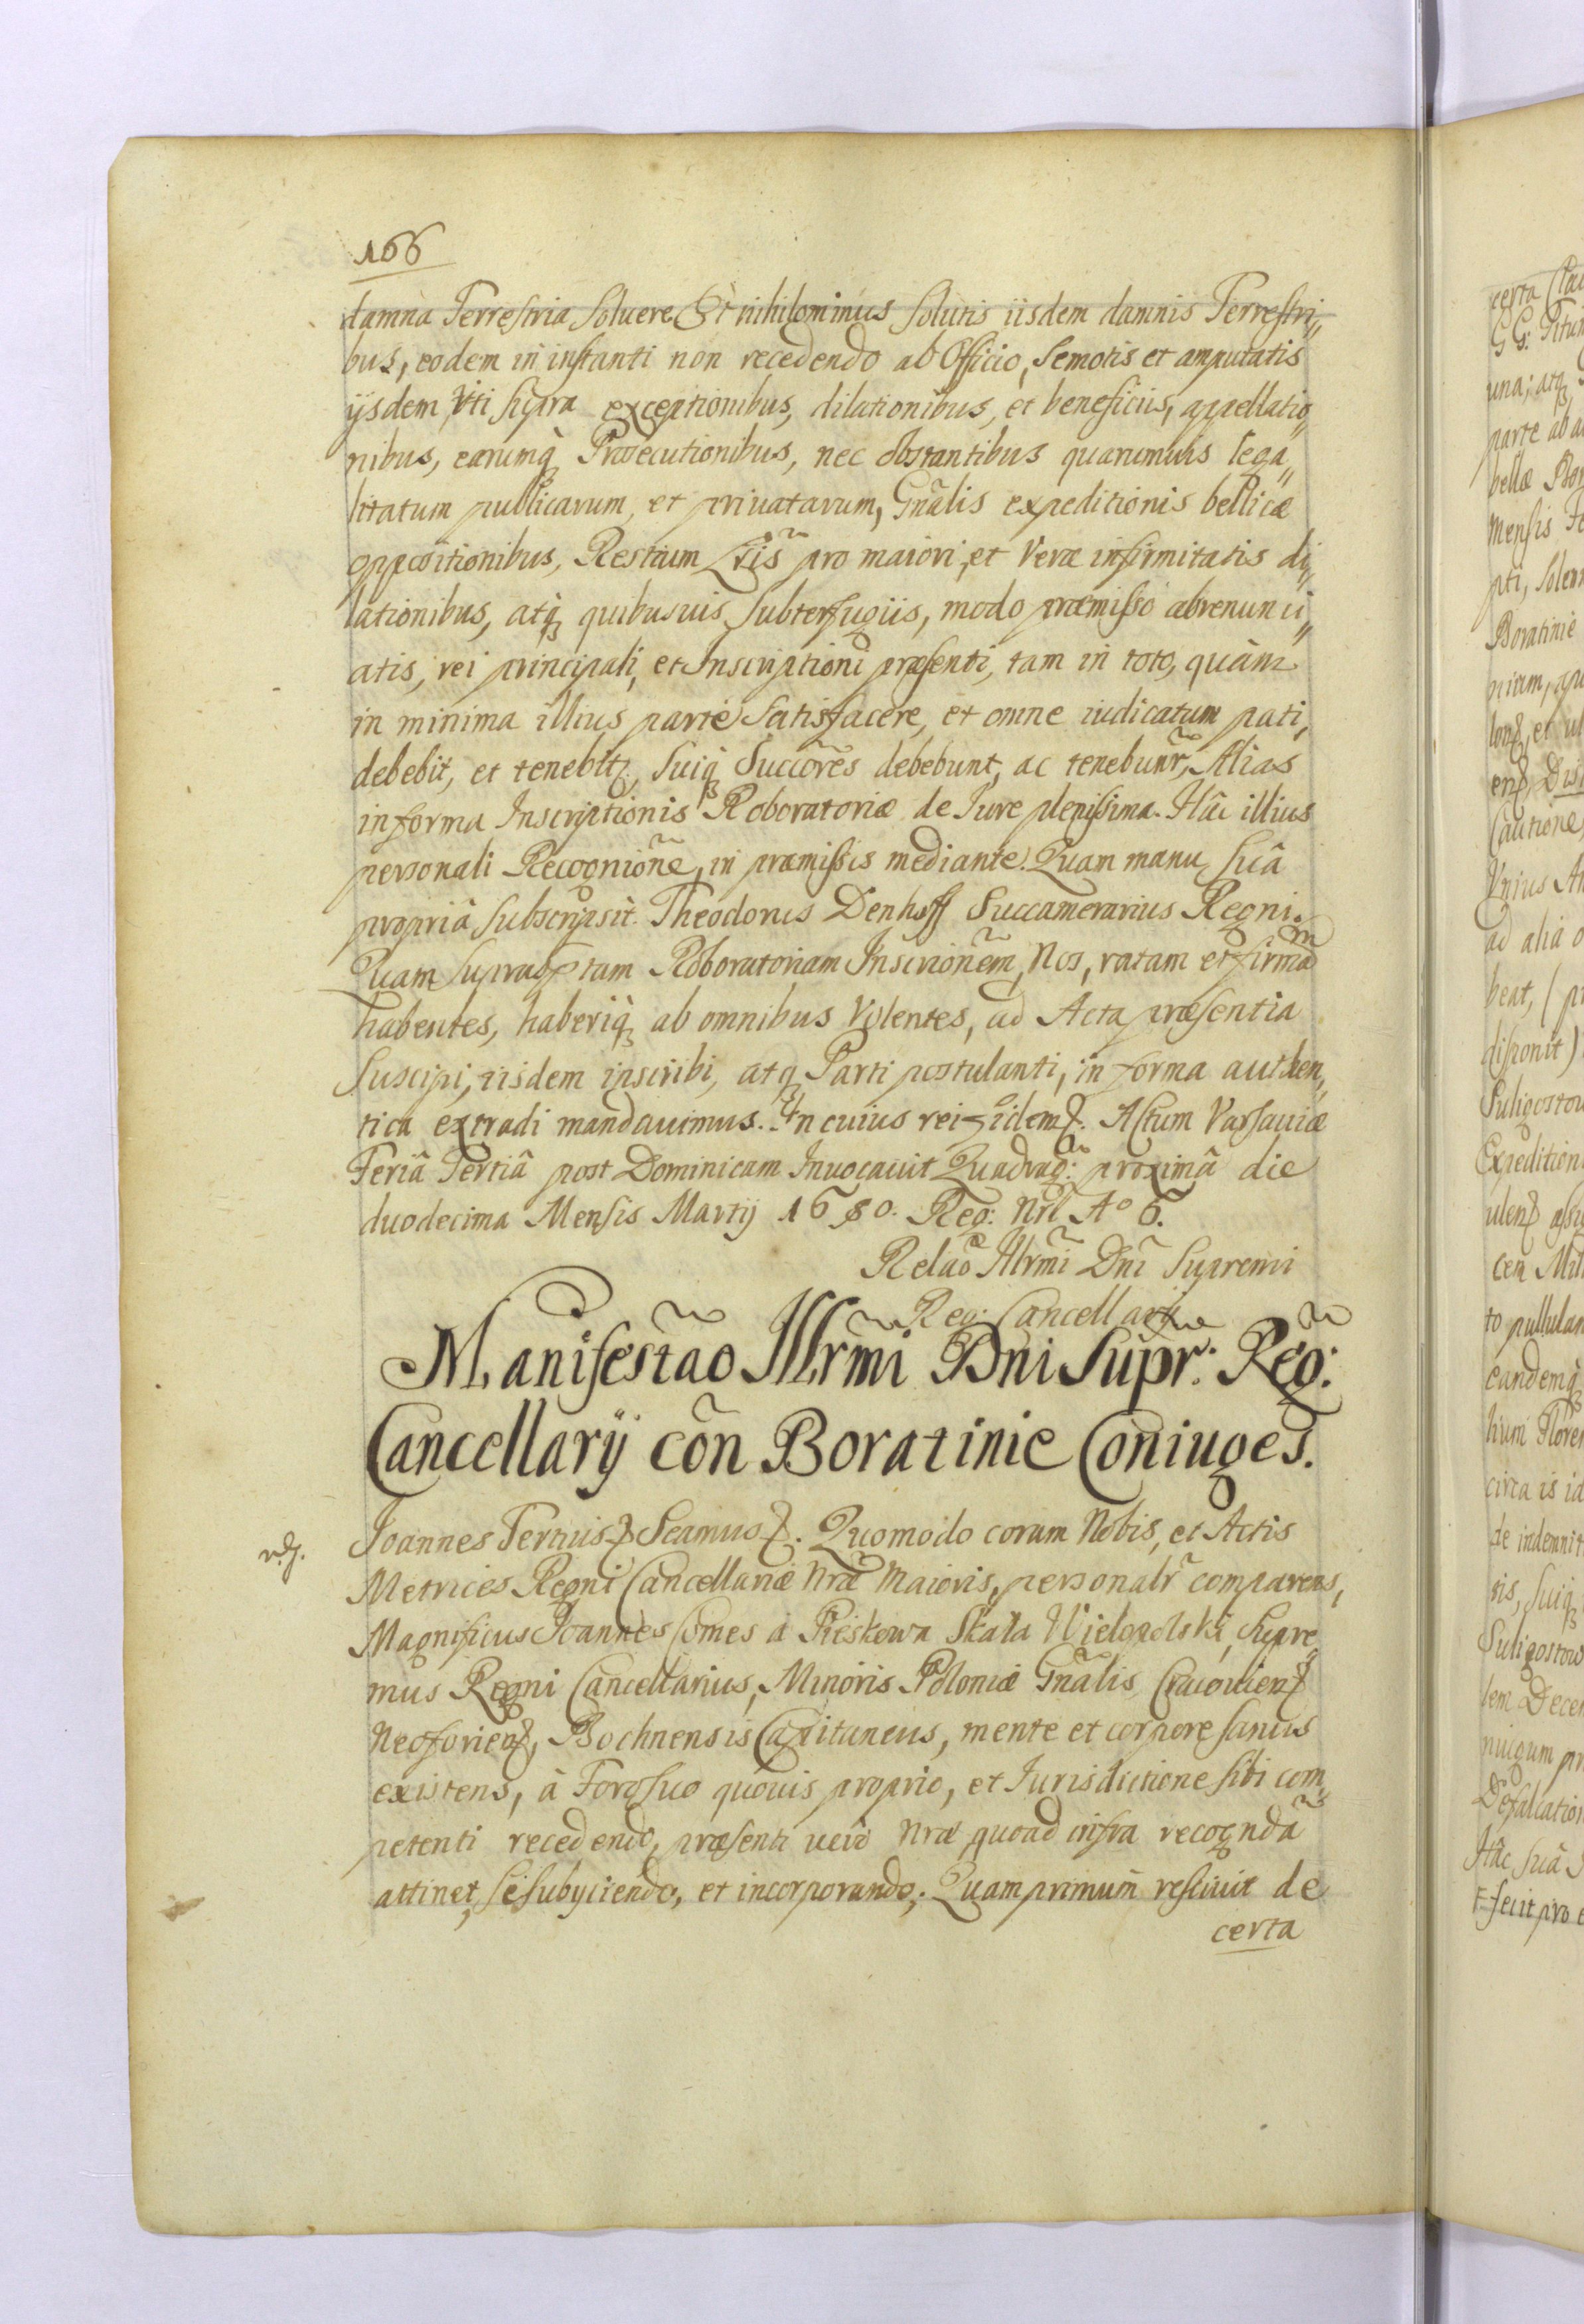 166
damna Terrestria soluere Et nihilominus solutis iisdem damnis Terrestri„
bus, eodem in instanti non recedendo ab Officio, semotis et amputatis
ijsdem, vti supra exceptionibus, dilationibus, et beneficijs, appellatio„
nibus, earumq̀ꝫ Prosecutionibus, nec obstantibus quarumuis lega„
litatum publicarum, et priuatarum, Gñalis expeditionis bellicæ
oppositionibus, Restium pro maiori, et Veræ infirmitatis di„
lationibus, atq̀ꝫ quibusuis subterfugijs, modo præmisso abrenunci„
atis, rei principali, et Inscriptioni præsenti, tam in toto, quàm
in minima illius parte satisfacere, et omne iudicatum pati,
debebit, et tenebitꝫ, suiq̀ꝫ Succores debebunt, ac tenebunr̃, Alias
in forma Inscriptionis Roboratoriæ de Iure plenissima. Hâc illius
personali Recognioñe, in præmissis mediante. Quam manu suâ
propriâ subscripsit. Theodorus Denhoff Succamerarius Regni.
Quam suprascptam Roboratoriam Inscrionem̃, Nos, ratam et firmam
habentes, haberiq̀ꝫ ab omnibus Volentes, ad Acta præsentia
suscipi, iisdem inscribi, atqꝫ Parti postulanti, in forma authen„
tica extradi mandauimus. In cuius rei fidemꝫ. Actum Varsauiæ
Feriâ Tertiâ post Dominicam Inuocauit Quadrag: proximâ die
duodecima Mensis Martij 1680. Reg: Nri Aº 6.
Relaõ Illrm̃i Dnĩ Supremi
Reg: Cancellarij
Manifestaõ Illrm̃i Dni Supr: Reg:
Cancellarij cõn Boratinie Coniuges.
Joannes Tertiusꝫ Seamusꝫ. Quomodo coram Nobis, et Actis
Metrices Regni Cancellariæ Nræ̃ Maioris, personalr̃ comparens,
Magnificus Joannes Comes à Pieskowa Skała Wielopolski, Supre„
mus Regni Cancellarius, Minoris Poloniæ Gñalis, Cracouienꝫ
Neoforienꝫ, Bochnensis Capitaneus, mente et corpore sanus
existens, à Foro suo quouis proprio, et Iurisdictione sibi com„
petenti recedendo, præsenti vero Nræ quoad infra recogndã
attinet, se subyciendo, et incorporando; Quamprimum resciuit de
certa